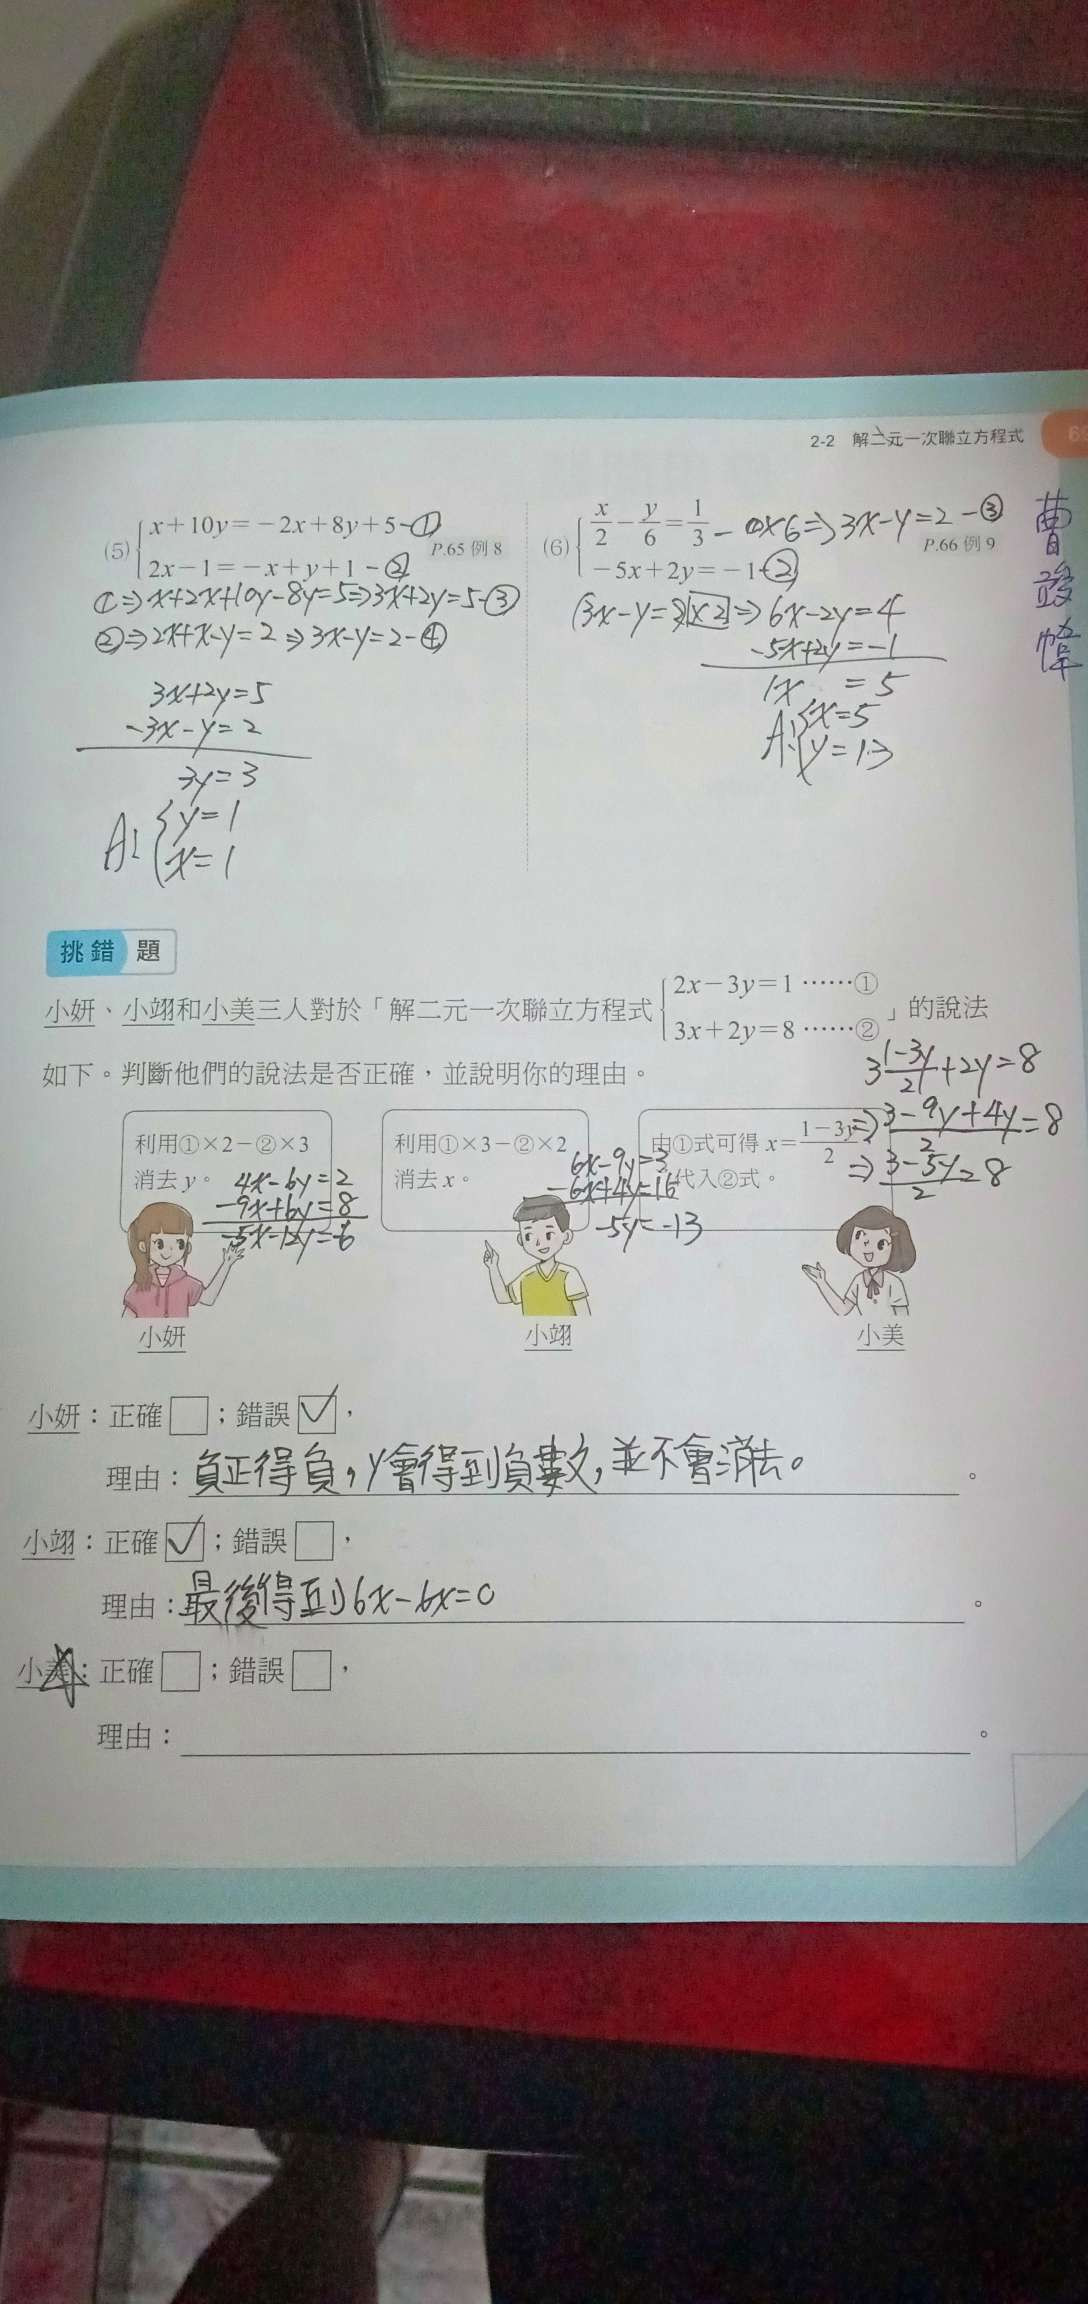 2-2 解二元一次聯立方程式
(5) x+10y=-2x+8y+5-①
2x-1=-x+y+1-②
P.65 例 8
①⇒x+2x+10y-8y=5⇒3x+2y=5-③
②⇒2x+x-y=2⇒3x-y=2-④
3x+2y=5
-3x-y=2
3y=3
A: y=1
x=1
(6) x/2-y/6=1/3-①x6⇒3x-y=2-③
-5x+2y=-1-②
P.66 例 9
x2⇒6x-2y=4
-5x+2y=-1
1x =5
A: x=5
y=13
挑錯題
小妍、小翊和小美三人對於「解二元一次聯立方程式 2x-3y=1……① 3x+2y=8……② 」的說法
如下。判斷他們的說法是否正確,並說明你的理由。
3 1-3y/2+2y=8
⇒3-9y+4y/2=8
⇒3-5y/2=8
利用①×2-②×3
消去 y。
4x-6y=2
-9x+6y=8
-5x-12y=-6
小妍
利用①×3-②×2
消去 x。
6x-9y=3
-6x+4y=16
-5y=-13
小翊
由①式可得 x=1-3y/2
代入②式。
小美
小妍:正確□;錯誤☑,
理由:負正得負,y會得到負數,並不會消去。。
小翊:正確☑;錯誤□,
理由:最後得到6x-6x=0。
小美:正確□;錯誤□,
理由:。